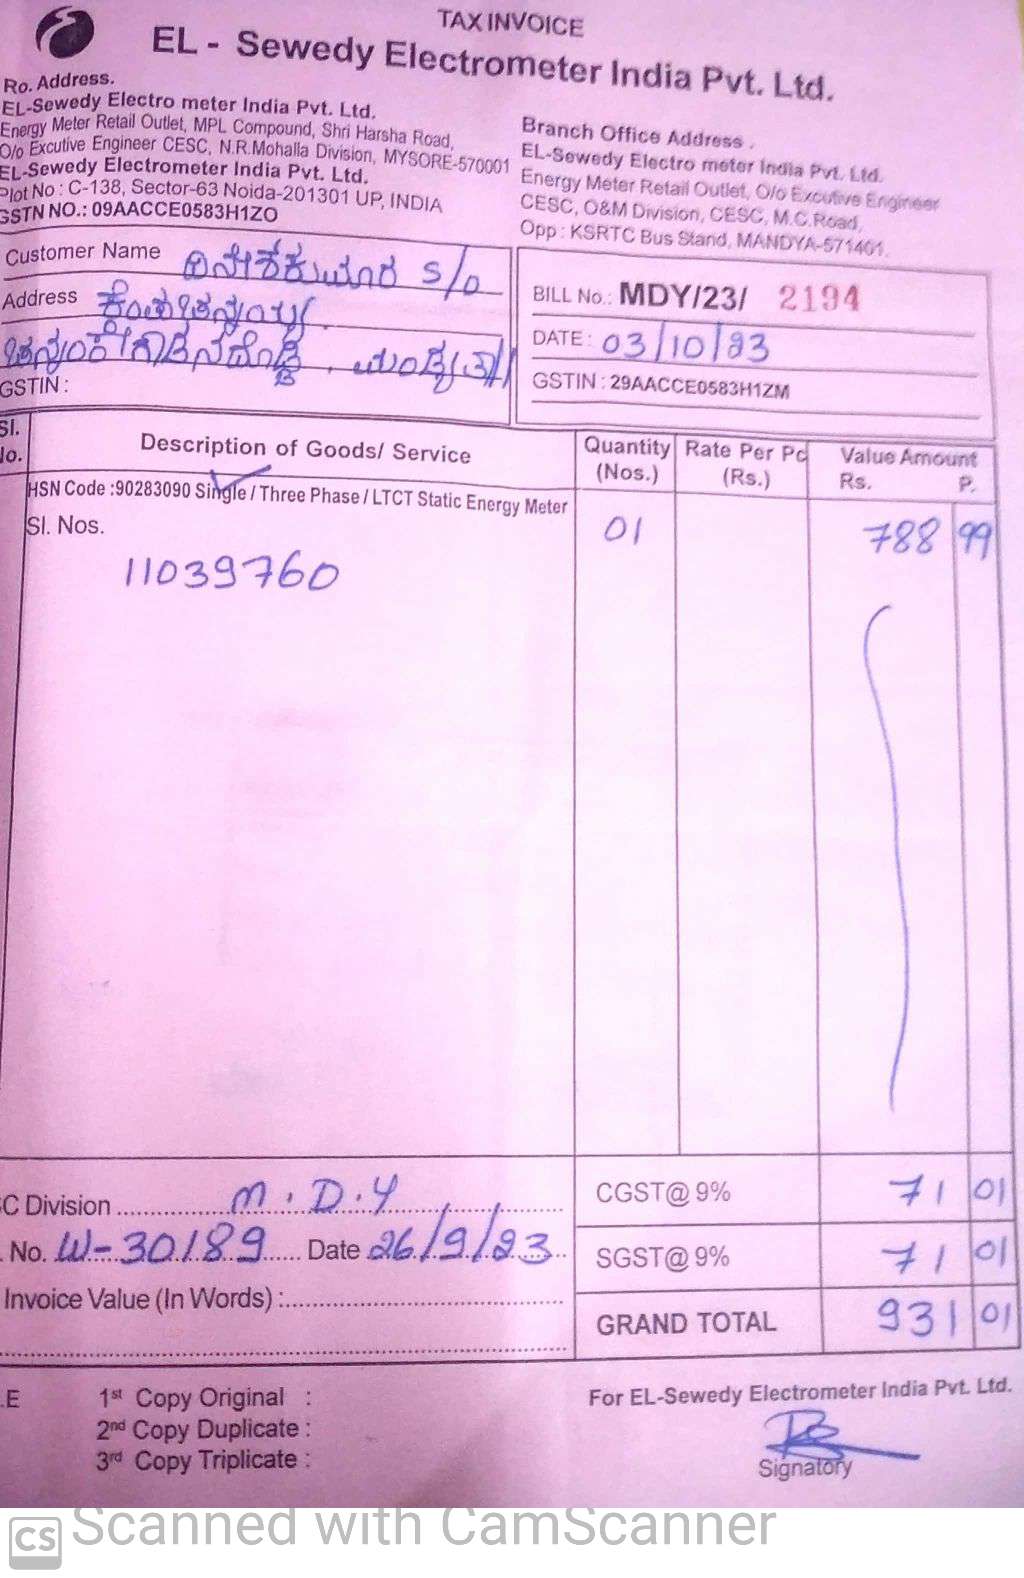 TAX INVOICE
EL - Sewedy Electrometer India Pvt. Ltd.
Ro. Address.
EL-Sewedy Electro meter India Pvt. Ltd.
Energy Meter Retail Outlet, MPL Compound, Shri Harsha Road,
O/o Excutive Engineer CESC, N.R.Mohalla Division, MYSORE-570001
EL-Sewedy Electrometer India Pvt. Ltd.
Plot No : C-138, Sector-63 Noida-201301 UP, INDIA
GSTN NO.: 09AACCE0583H1ZO
Branch Office Address .
EL-Sewedy Electro meter India Pvt. Ltd.
Energy Meter Retail Outlet, O/o Excutive Engineer
CESC, O&M Division, CESC, M.C.Road,
Opp : KSRTC Bus Stand, MANDYA-571401.
Customer Name S/o
Address
GSTIN :
BILL No.: MDY/23/ 2194
DATE : 03/10/23
GSTIN : 29AACCE0583H1ZM
Sl. No. Description of Goods/ Service Quantity (Nos.) Rate Per Pc (Rs.) Value Amount Rs. P.
HSN Code :90283090 Single / Three Phase / LTCT Static Energy Meter
Sl. Nos. 01 788 99
11039760
C Division M.D.Y CGST@ 9% 71 01
No. W-30189 Date 26/9/23 SGST@ 9% 71 01
Invoice Value (In Words) :
GRAND TOTAL 931 01
.E 1st Copy Original :
2nd Copy Duplicate :
3rd Copy Triplicate :
For EL-Sewedy Electrometer India Pvt. Ltd.
Signatory
CS Scanned with CamScanner